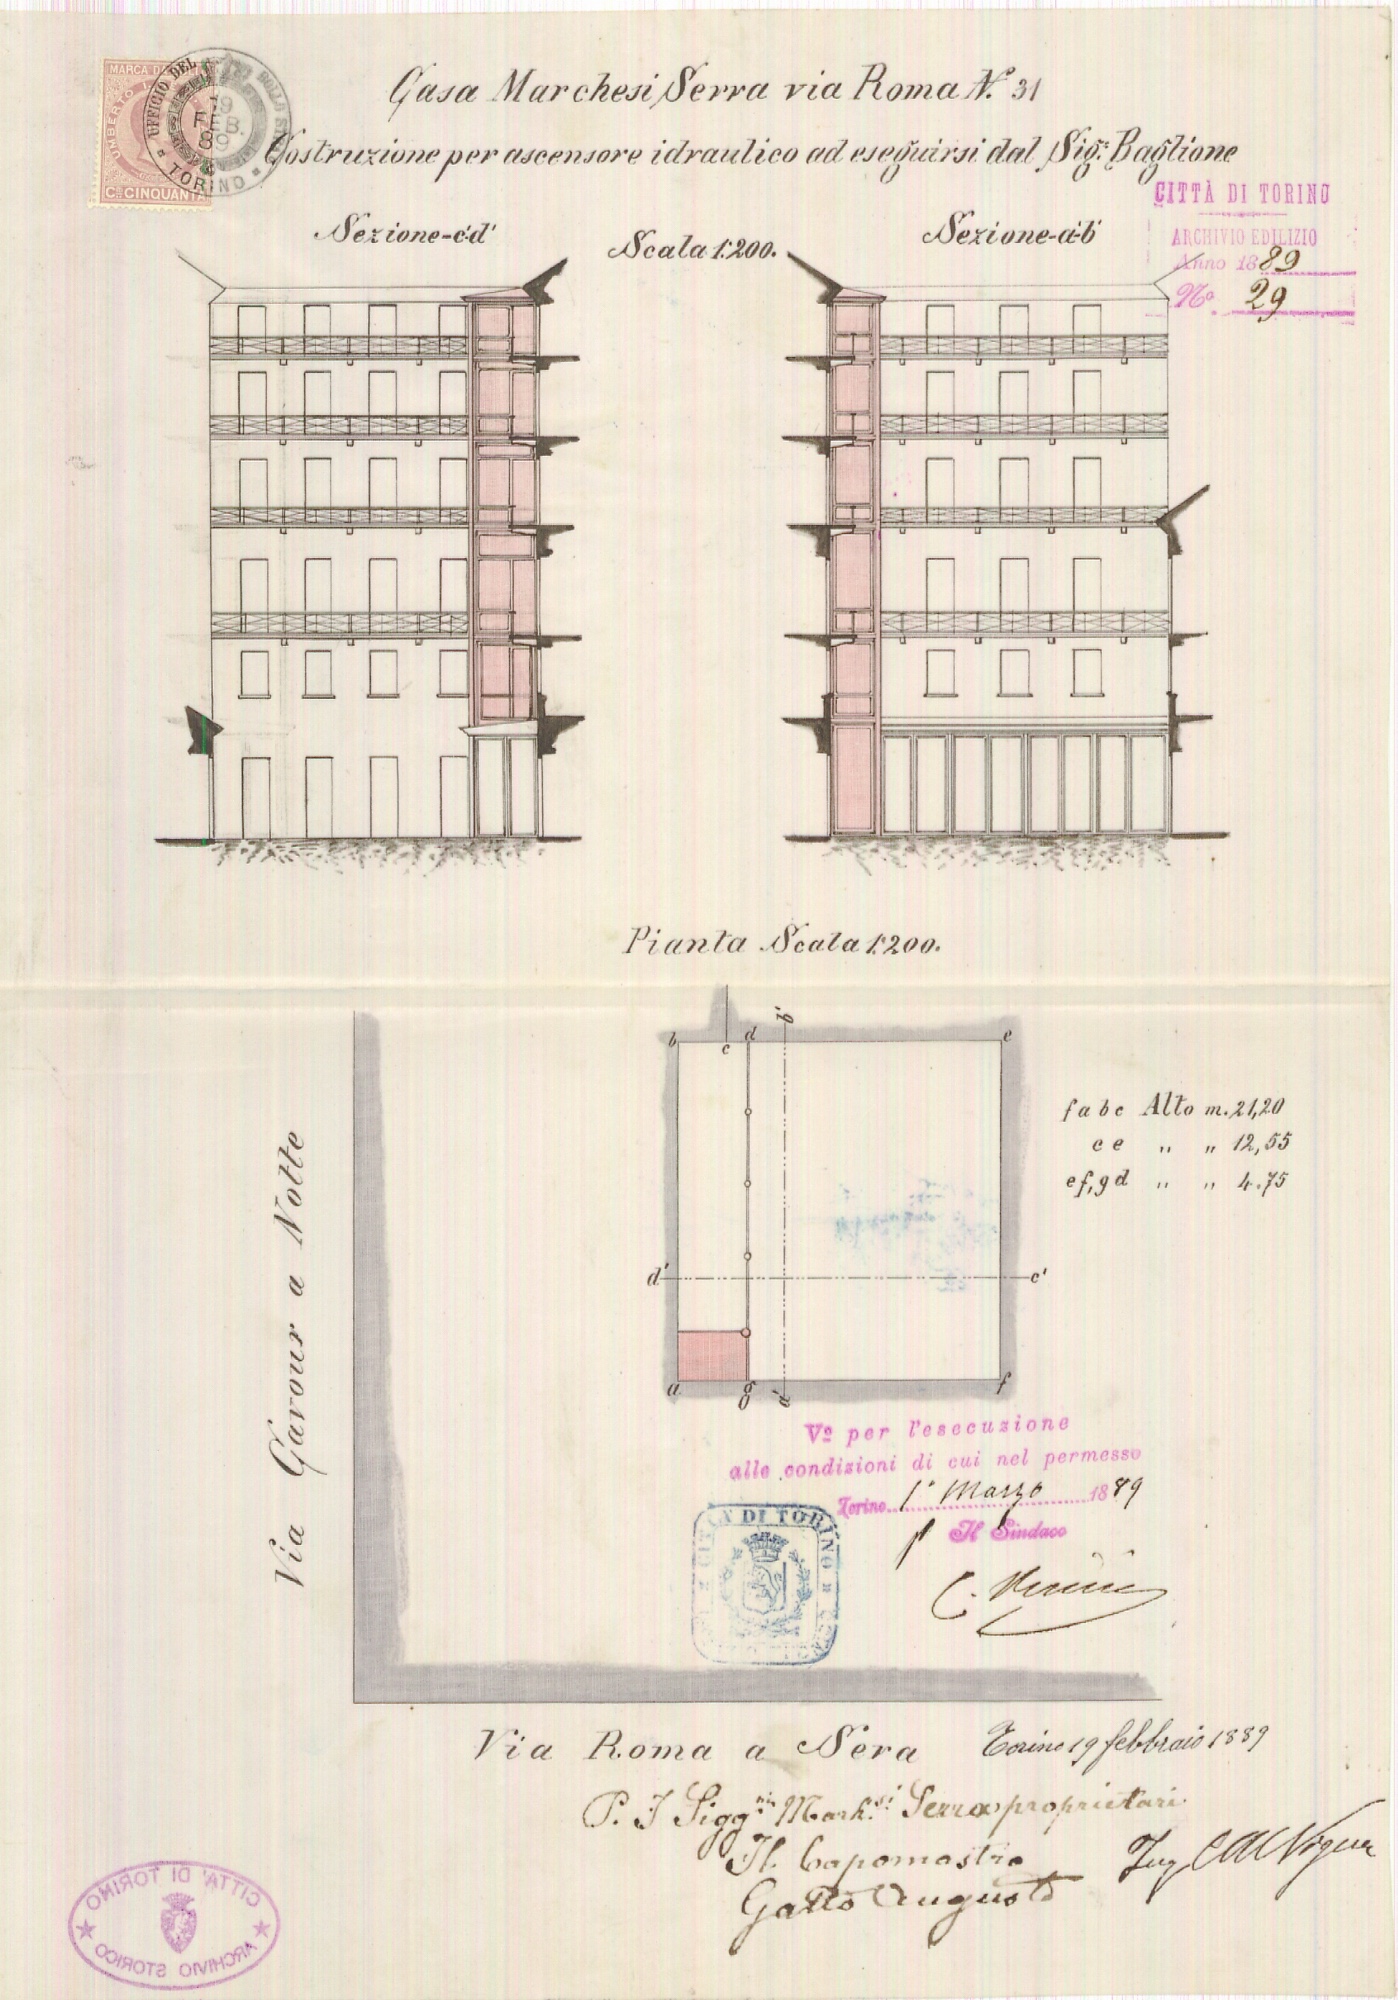 MARCA DA
UMBERTO I
Cmi CINQUANTA
UFFICIO DEL BOLLO STR
19
FEB.
89
TORINO
Casa Marchesi Serra via Roma N.° 31
Costruzione per ascensore idraulico ad eseguirsi dal Sig.r Baglione
CITTÀ DI TORINO
ARCHIVIO EDILIZIO
Anno 1889
No. 29
Sezione-c'd'
Scala 1:200.
Sezione-a'b'
Pianta Scala 1:200.
b'
b c d e
f a b c Alto m. 21,20
c e " " 12,55
e f, g d " " 4.75
d' c'
a g a' f
Via Cavour a Notte
Vo per l'esecuzione
alle condizioni di cui nel permesso
Torino 1° Marzo 1889
p Il Sindaco
CITTÀ DI TORINO
Via Roma a Sera
Torino 19 febbraio 1889
P. I Sigg.ri March.si Serra proprietari
Il Capomastro
Gatto Augusto
Ing
CITTA' DI TORINO
ARCHIVIO STORICO